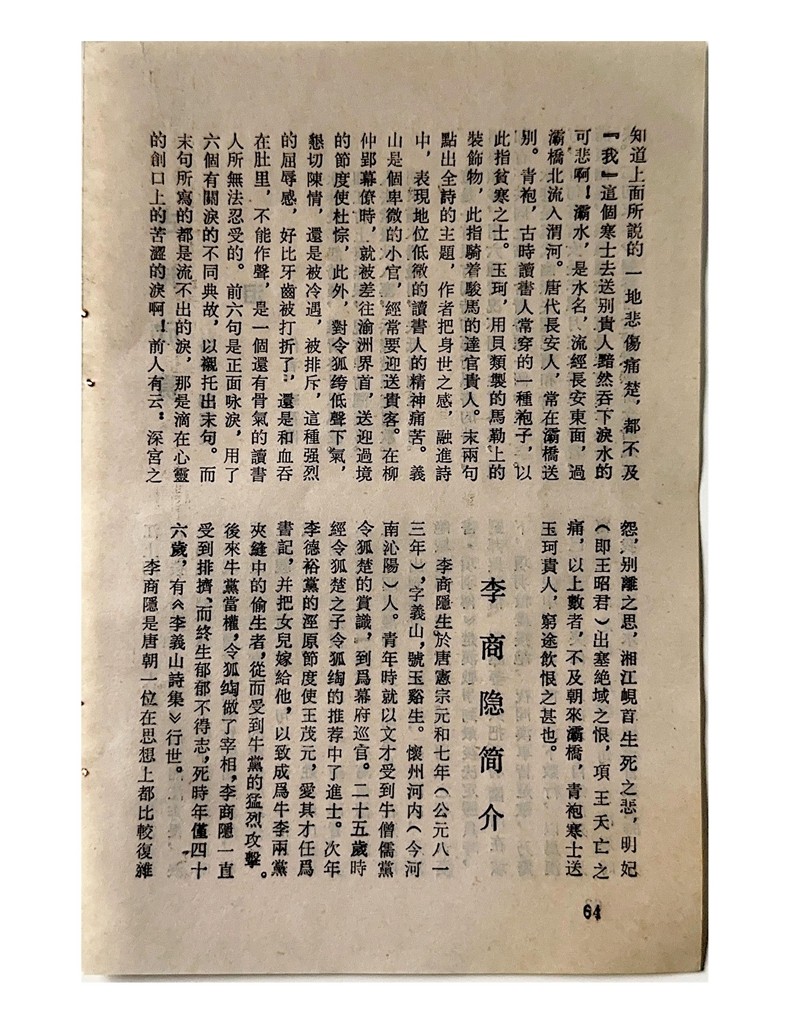 知道上面所説的一地悲傷痛楚，都不及
『我』這個寒士去送别貴人黯然吞下淚水的
可悲啊！灞水，是水名，流經長安東面，過
灞橋北流入渭河。唐代長安人，常在灞橋送
别。青袍，古時讀書人常穿的一種袍子，以
此指貧寒之士。玉珂，用貝類製的馬勒上的
裝飾物，此指騎着駿馬的達官貴人。末兩句
點出全詩的主題，作者把身世之感，融進詩
中，表現地位低微的讀書人的精神痛苦。義
山是個卑微的小官，經常要迎送貴客。在柳
仲郢幕僚時，就被差往渝洲界首，送迎過境
的節度使杜悰，此外，對令狐绹低聲下氣，
懇切陳情，還是被冷遇，被排斥，這種强烈
的屈辱感，好比牙齒被打折了，還是和血吞
在肚里，不能作聲，是一個還有骨氣的讀書
人所無法忍受的。前六句是正面咏淚，用了
六個有關淚的不同典故，以襯托出末句。而
末句所寫的都是流不出的淚，那是滴在心靈
的創口上的苦澀的淚啊！前人有云：深宮之
怨，别離之思，湘江峴首生死之悲，明妃
（即王昭君）出塞絶域之恨，項王天亡之
痛，以上數者，不及朝來灞橋，青袍寒士送
玉珂貴人，窮途飲恨之甚也。
李商隐简介
李商隱生於唐憲宗元和七年（公元八一
三年），字義山，號玉谿生。懷州河内（今河
南沁陽）人。青年時就以文才受到牛僧儒黨
令狐楚的賞識，到爲幕府巡官。二十五歲時
經令狐楚之子令狐绹的推荐中了進士。次年
李德裕黨的涇原節度使王茂元，愛其才任爲
書記，并把女兒嫁給他，以致成爲牛李兩黨
夾縫中的偷生者，從而受到牛黨的猛烈攻擊。
後來牛黨當權，令狐绹做了宰相，李商隱一直
受到排擠，而終生郁郁不得志，死時年僅四十
六歲，有《李義山詩集》行世。
李商隱是唐朝一位在思想上都比較復雜
64